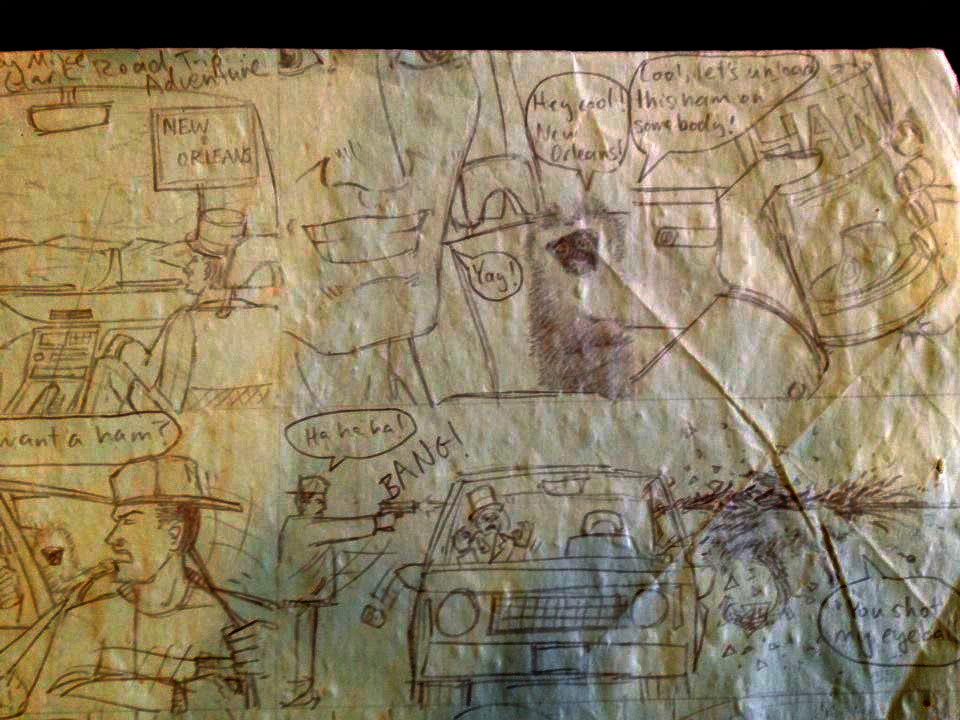 Mike
Road Trip
Adventure
NEW
ORLEANS
Yay!
Hey cool!
New
Orleans!
Cool, let's unload
this ham on
somebody!
HAN
want a ham?
Ha ha ha!
BANG!
You shot
my eye